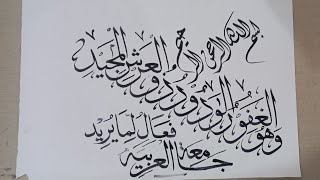 بسم الله الرحمن الرحيم
وهو الغفور الودود ذو العرش المجيد
فعال لما يريد
جامعة العربيه